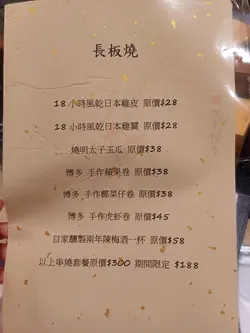 長板燒
18 小時風乾日本雞皮 原價$28
18 小時風乾日本雞翼 原價$38
燒明太子玉瓜 原價$38
博多 手作蘋果卷 原價$38
博多 手作椰菜仔卷 原價$38
博多 手作虎蝦卷 原價$45
自家釀製兩年陳梅酒一杯 原價$58
以上串燒套餐原價$300 期間限定 $188